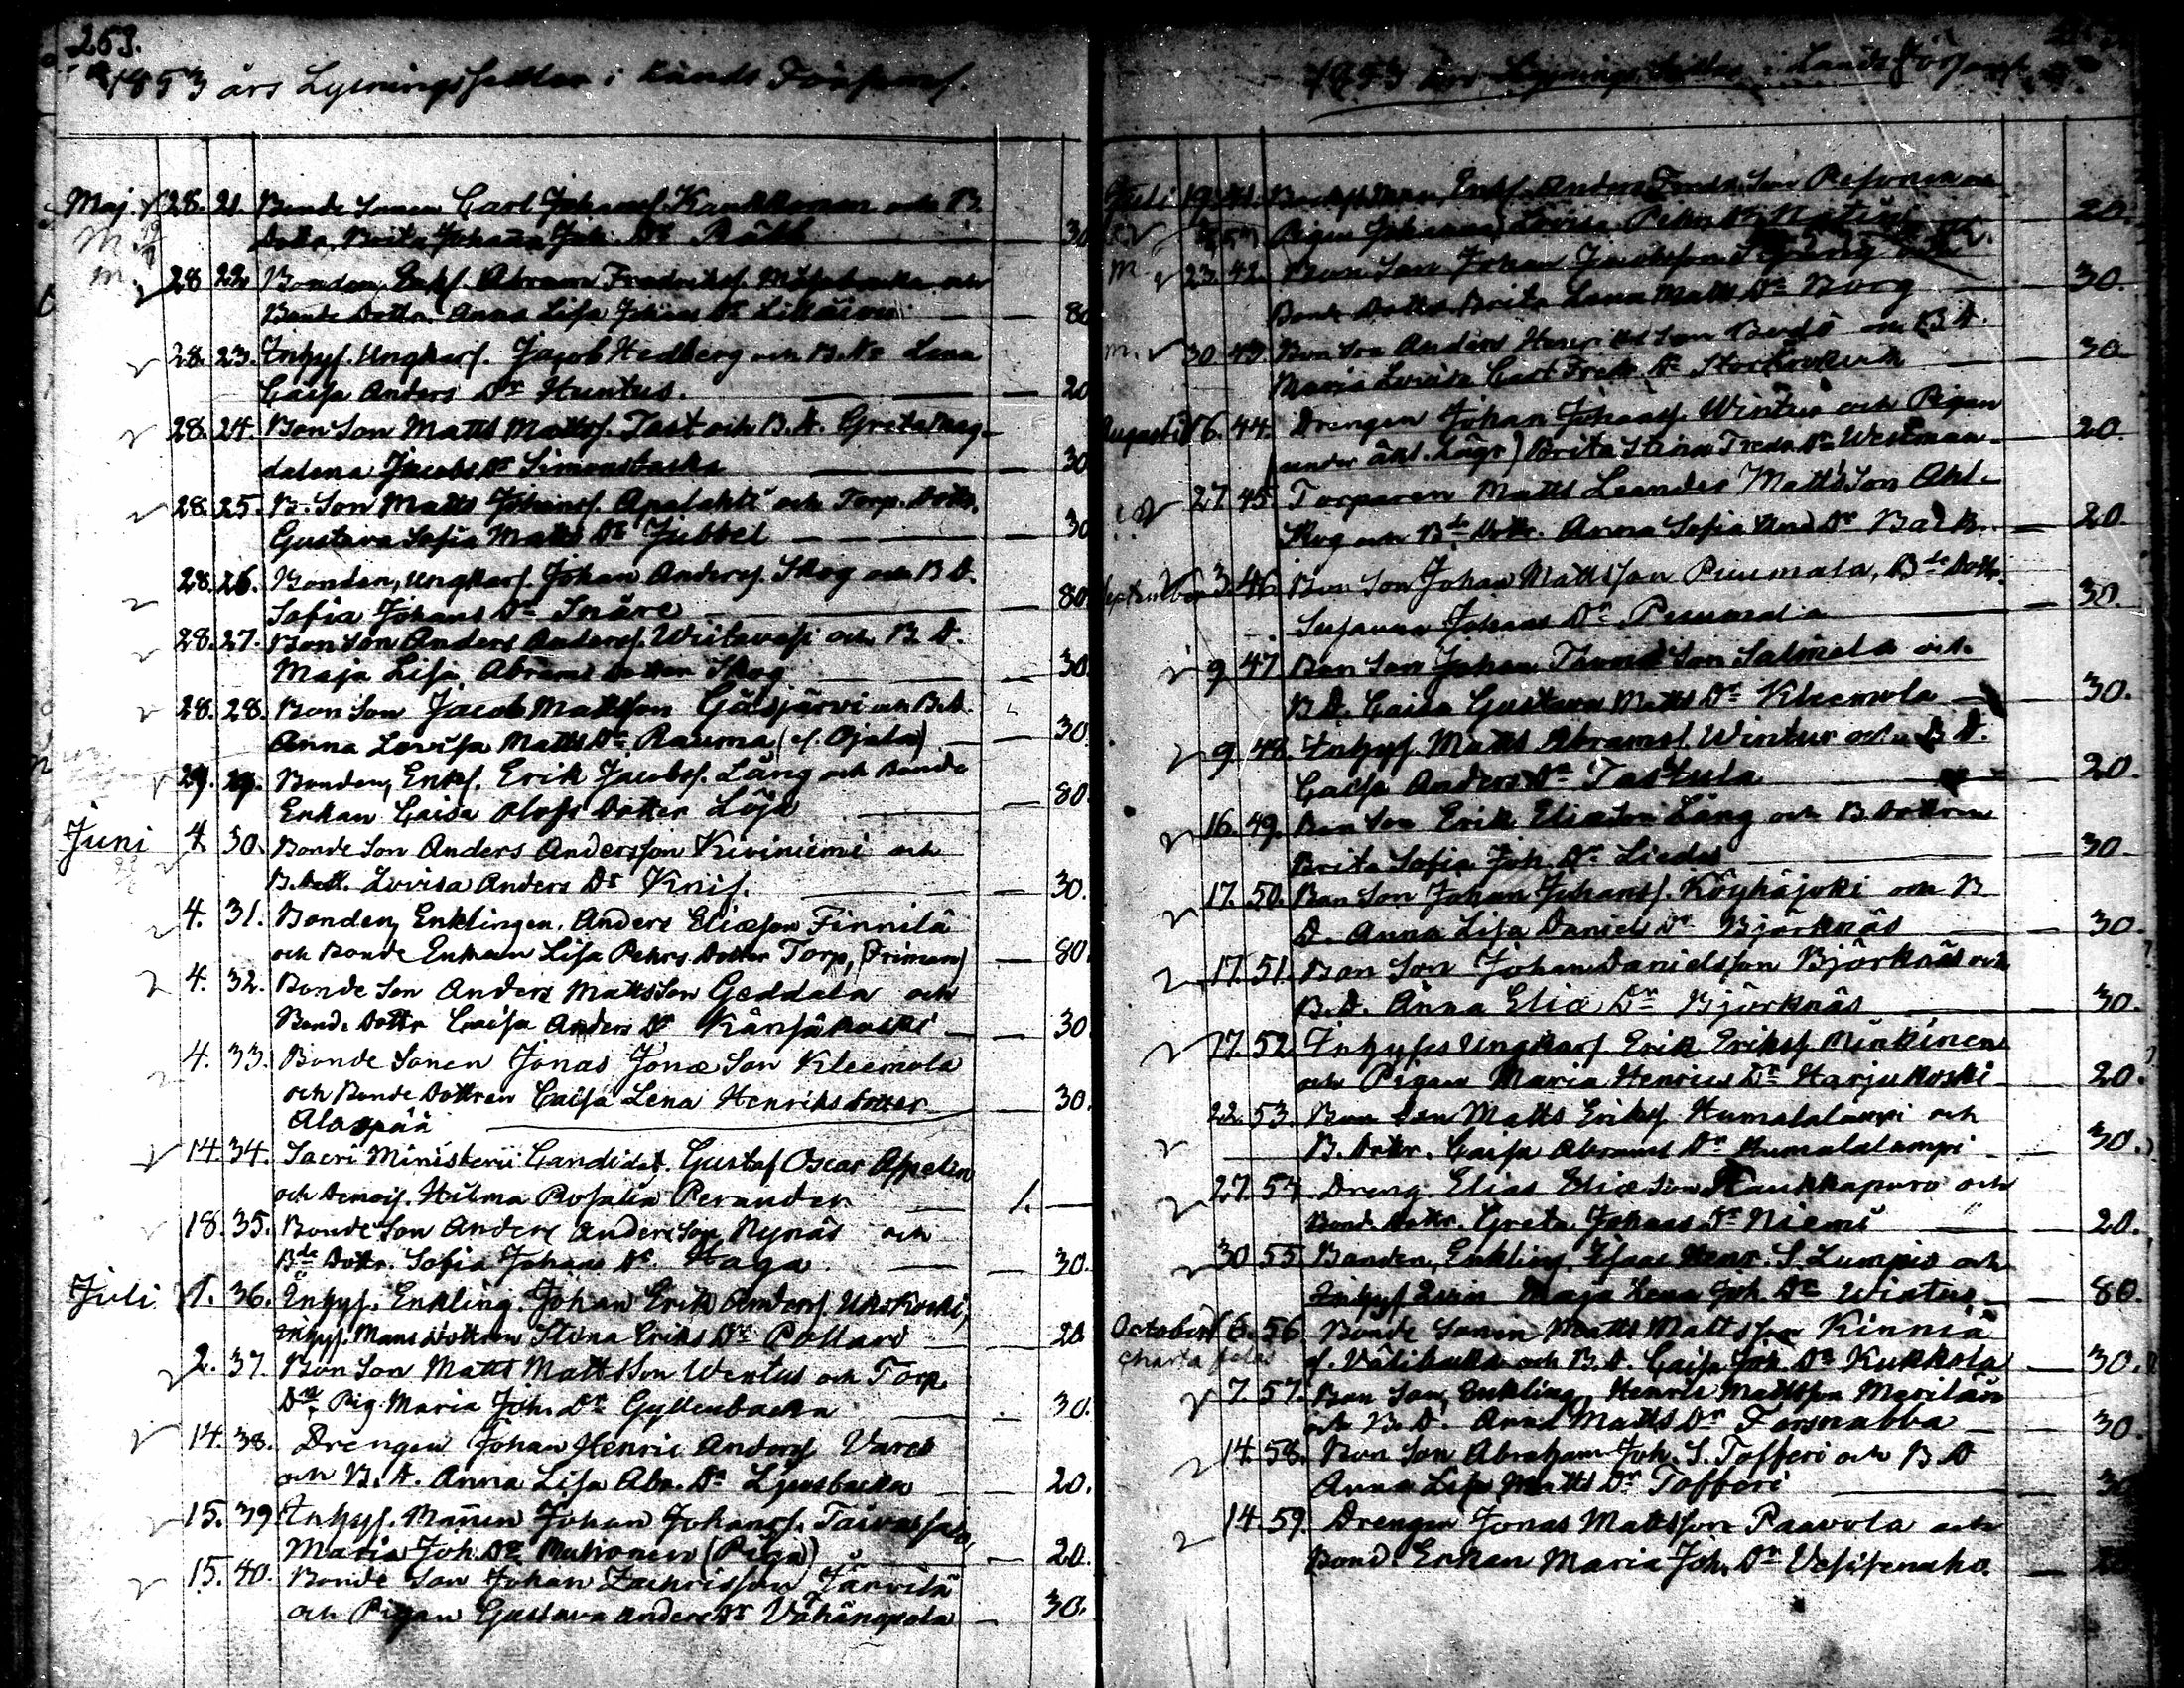 263.
1853 års Lysningssedlar i Lands Församl.
Maj 28. 21. Bonde Sonen Carl Johanss. Kaukkonen och B.
dottr. Brita Johanna Joh. Dr Rätt — 30
M.
m. 28 22 Bonden, Enkl. Abram Fredrikss. och
Bonde Dottr. Anna Lisa Johans Dr — 80
28. 23. Inhys. Ungkarl. Jacob Hedberg och B. Dr Lena
Caisa Anders Dr Huntus. — 20
28. 24. Bon Son Matts Mattss. Tast och B. D. Greta Mag-
dalena Jacobs Dr Simonsbacka — 30
28. 25. B. Son Matts Johanss. Apalahti och Torp. Dottr.
Gustava Sofia Matts Dr Jubbel — 30
28. 26. Bonden, Ungkarl. Johan Anderss. Skog och B D.
Sofia Johans Dr Snåre — 80
28. 27. Bon Son Anders Anderss. Wiitavasi och B. D.
Maja Lisa Abrams dotter Skog — 30
28. 28. Bon Son Jacob Mattsson Gåsjärvi och B. D.
Anna Lovisa Matts Dr Rauma, (f. Ojala) — 30.
29. 29. Bonden, Enkl. Erik Jacobss. Lång och Bonde
Enkan Caisa Olofs Dotter Löjo — 80.
Juni 4 30. Bonde Son Anders Andersson Kiviniemi och
B. dott. Lovisa Anders Dr Knif. — 30.
4. 31. Bonden, Enklingen. Anders Eliæson Finnilä
och Bonde Enkan Lisa Pehrs Dotter Torp, (Friman) — 80
4. 32. Bonde Son Anders Mattsson Geddala och
Bonde Dottr Caisa Anders Dr Känsäkoski — 30
4. 33. Bonde Sonen Jonas Jonæ Son Kleemola
och Bonde Dottren Caisa Lena Henriks dotter — 30.
Alaspää
14. 34. Sacri Ministerii Candidat. Gustaf Oscar Appelin
och Demois. Hilma Rosalia Perander — 1. —
18. 35. Bonde Son Anders Anders Son Nynäs och
Bde Dottr. Sofia Johans Dr Haga. — 30.
Juli 1. 36. Inhys. Enkling. Johan Erik Anderss. Ukskoski,
Inhys. Mans dottren Stina Eriks Dr Pollard — 20
2. 37. Bon Son Matts Mattsson Wentus och Torp.
Dr Pig. Maria Joh. Dr Gyllenbacka — 30.
14. 38. Drengen Johan Henric Anderss Vares
och B. D. Anna Lisa Abr. Dr Ljusbacka — 20.
15. 39 Inhys. Mannen Johan Johanss. Taivassalo,
Maria Joh. Dr Mutkonen (Piga) — 20.
15. 40. Bonde Son Johan Zachrisson Järvilä
och Pigan Gustava Anders Dr Vähänapola — 30.
1853 års Lysnings Sedlar i Lands Församl.
Juli 19. 41. Enkl. Anders Fredr. Son och
Pigan Johanna Lovisa Pehrs Dr — 20.
m. 23. 42. Bon Son Johan Jacobsson och
Bonde Dottr. Brita Lena Matts Dr Borg — 30.
m. 30 43 Bon Son Anders Henriks Son och B D.
Maria Lovisa Carl Fredr. Dr Storkrokvik — 30.
Augusti 6. 44. Drengen Johan Johanss. Wintus och Pigan
(under äkt. lägr) Brita Stina Fredr. Dr Westman — 20.
27 45 Torparen Matts Leander Matts Son Ahl-
skog och Bde Dottr. Anna Sofia And. Dr Back. — 20.
September 3. 46. Bon Son Johan Mattsson Puumala, Bde Dottr.
Susanna Johans Dr Puumala — 30.
9 47 Bon Son Johan Thomæ Son Salmela och
B D. Caisa Gustava Matts Dr Kleemola — 30.
9 48. Inhys. Matts Abramss. Wintur och B D.
Caisa Anders Dr Tastula — 20.
16. 49. Bon Son Erik Eliæson Lång och B. Dottren
Brita Sofia Joh. Dr Liedes — 30.
17. 50. Bon Son Johan Johanss. Köyhäjoki och B
D. Anna Lisa Daniels Dr Björknäs — 30.
17. 51. Bon Son Johan Danielsson Björknäs och
B. D. Anna Eliæ Dr Björknäs — 30.
17. 52. Inhyses Ungkarl Erik Erikss Minkinen
och Pigan Maria Henrics Dr Harjukoski — 20.
22. 53. Bon Son Matts Erikss. Humalalampi och
B. Dottr. Caisa Abrams Dr Humalalampi — 30.
27. 54 Dreng. Elias Eliæ Son Haukkapuro och
Bond. dottr. Greta Johans Dr Niemi — 20.
30 55 Bonden, Enkling. Isaac Henr. S. Lumpio och
Inhys Maja Lena Joh. Dr Wintus — 80.
October 6. 56 Bonde Sonen Matts Mattsson Kinniä
Charta felas f. Välikukka och B. D. Caisa Joh. Dr Kukkola — 30.
7. 57. Bon Son, Enkling, Henric Mattsson Marilän
och B. D. Anna Matts Dr Forsnabba — 30.
14. 58. Bon Son Abraham Joh. S. Tofferi och B D
Anna Lisa Matts Dr Tofferi — 30
14 59 Drengen Jonas Mattsson Paavola och
Bond. Enkan Maria Joh. Dr Vesisenaho. —